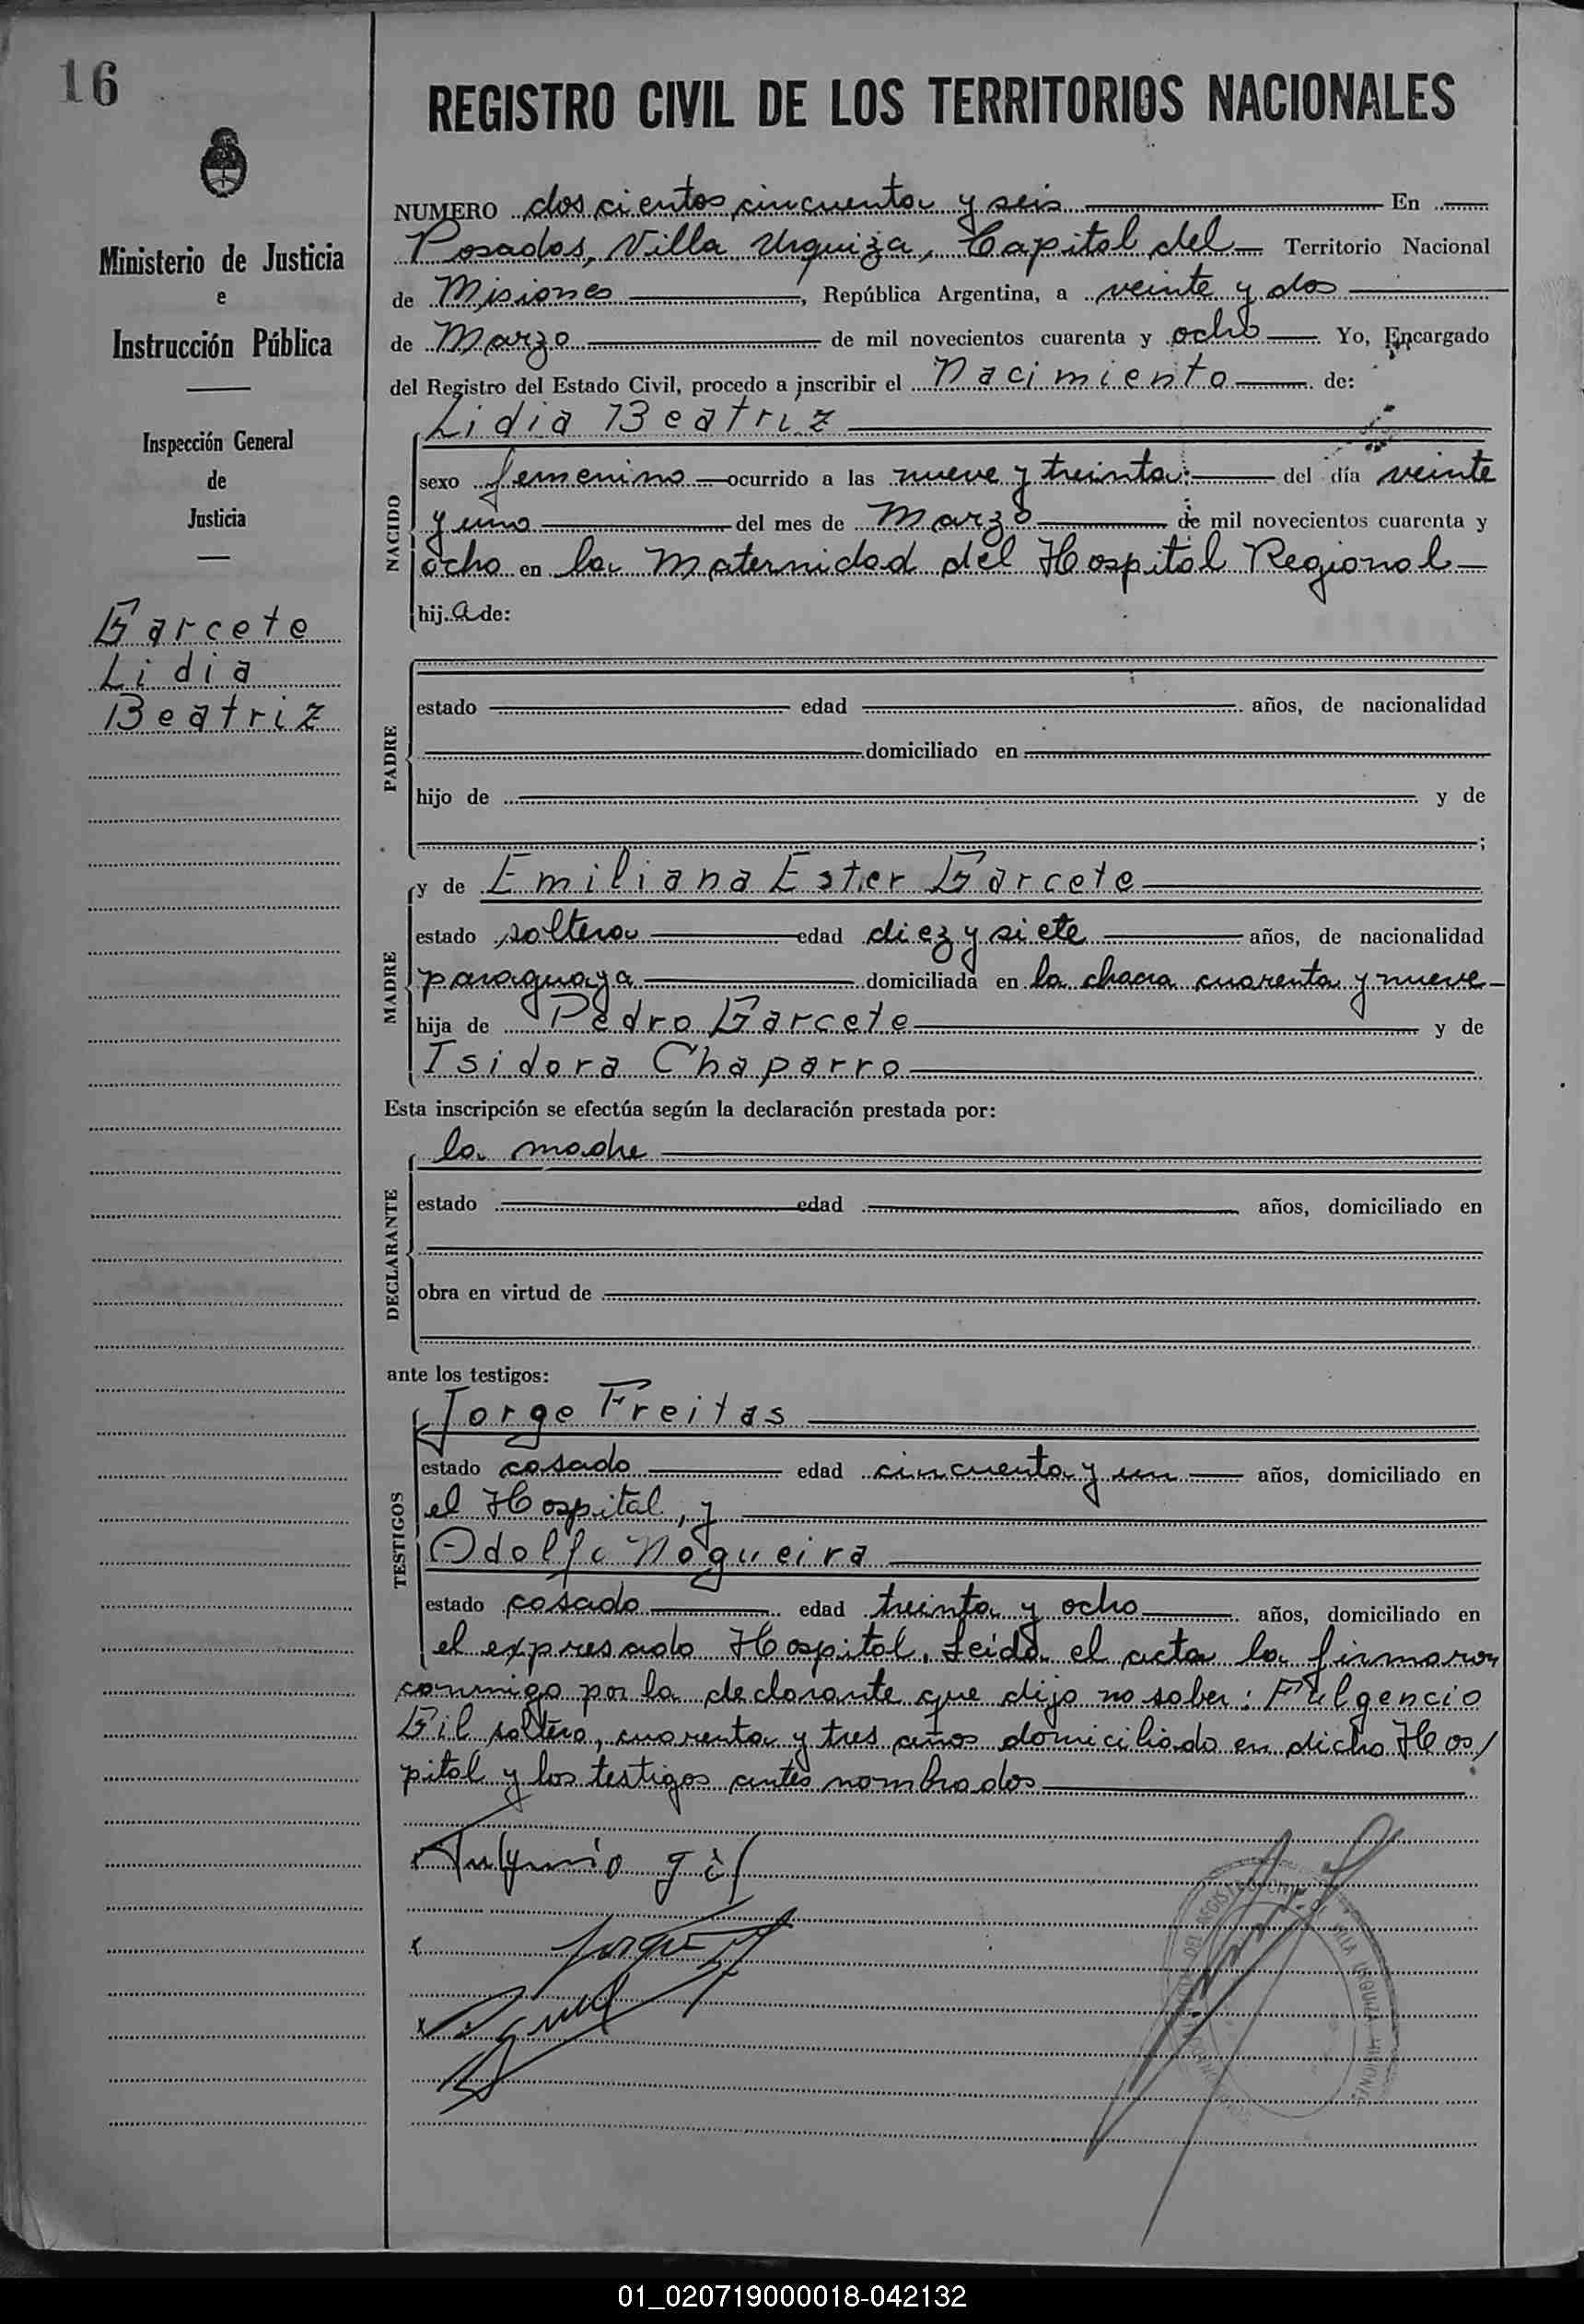 16
Ministerio de Justicia
e
Instrucción Pública
Inspección General
de
Justicia
Garcete
Lidia
Beatriz
REGISTRO CIVIL DE LOS TERRITORIOS NACIONALES
NUMERO dos cientos cincuenta y seis En
Posadas, Villa Urquiza, Capital del Territorio Nacional
de Misiones, República Argentina, a veinte y dos
de Marzo de mil novecientos cuarenta y ocho Yo, Encargado
del Registro del Estado Civil, procedo a inscribir el Nacimiento de:
Lidia Beatriz
NACIDO
sexo femenino ocurrido a las nueve y treinta: del día veinte
y uno del mes de Marzo de mil novecientos cuarenta y
ocho en la Maternidad del Hospital Regional
hij.a de:
PADRE
estado edad años, de nacionalidad
domiciliado en
hijo de y de
;
MADRE
y de Emiliana Ester Garcete
estado soltera edad diez y siete años, de nacionalidad
paraguaya domiciliada en la chacra cuarenta y nueve
hija de Pedro Garcete y de
Isidora Chaparro
Esta inscripción se efectúa según la declaración prestada por:
la madre
DECLARANTE
estado edad años, domiciliado en
obra en virtud de
ante los testigos:
TESTIGOS
Jorge Freitas
estado casado edad cincuenta y un años, domiciliado en
el Hospital, y
Adolfo Nogueira
estado casado edad treinta y ocho años, domiciliado en
el expresado Hospital. Leida el acta la firmaron
conmigo por la declarante que dijo no saber: Fulgencio
Gil soltero, cuarenta y tres años domiciliado en dicho Hos/
pital y los testigos antes nombrados
x Fulgencio gil
x Jorge
x
VILLA URQUIZA MISIONES
01_020719000018-042132